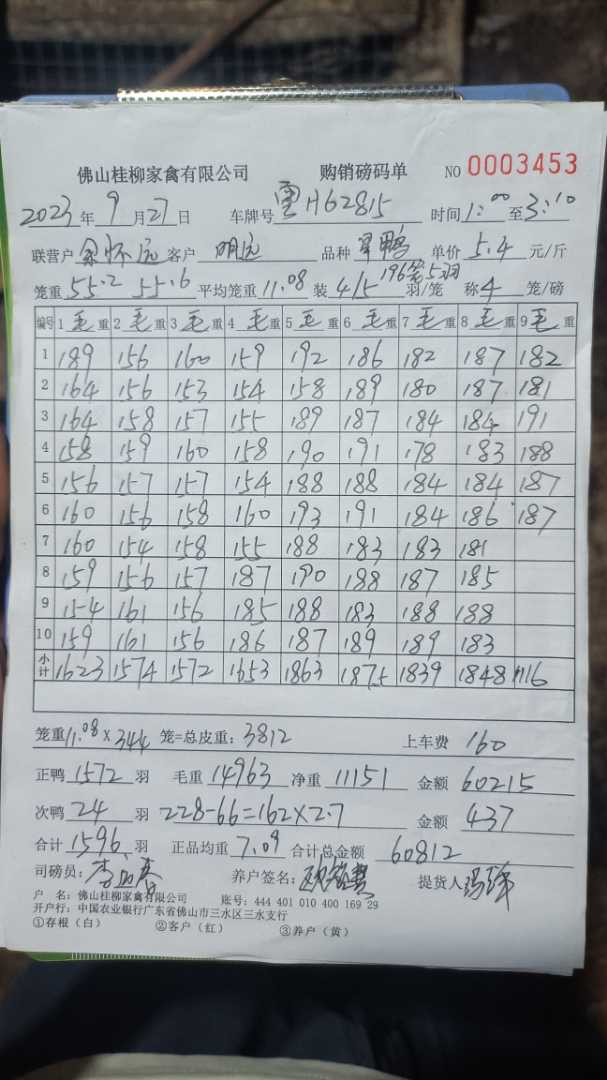 佛山桂柳家禽有限公司 购销磅码单 NO 0003453
2023年 9月27日 车牌号 粤H62815 时间1:00至3:10
联营户 余怀远 客户 明远 品种 旱鸭 单价 5.4 元/斤
笼重 55.2 55.6 平均笼重 11.08 装 4/5 196笼5羽 羽/笼 称 4 笼/磅
编号 1 毛重 2 毛重 3 毛重 4 毛重 5 毛重 6 毛重 7 毛重 8 毛重 9 毛重
1 189 156 160 159 192 186 182 187 182
2 164 156 153 154 158 189 180 187 181
3 164 158 157 155 189 187 184 184 191
4 158 159 160 158 190 191 178 183 188
5 156 157 157 154 188 188 184 184 187
6 160 156 158 160 193 191 184 186 187
7 160 154 158 155 188 183 183 181
8 159 156 157 187 190 188 187 185
9 154 161 156 185 188 183 188 188
10 159 161 156 186 187 189 189 183
小计 1623 1574 1572 1653 1863 1875 1839 1848 1116
笼重 11.08 x 344 笼=总皮重: 3812 上车费 160
正鸭 1572 羽 毛重 14963 净重 11151 金额 60215
次鸭 24 羽 228-66=162×2.7 金额 437
合计 1596 羽 正品均重 7.09 合计总金额 60812
司磅员: 养户签名: 提货人
户 名: 佛山桂柳家禽有限公司 账号: 444 401 010 400 169 29
开户行: 中国农业银行广东省佛山市三水区三水支行
①存根(白) ②客户(红) ③养户(黄)